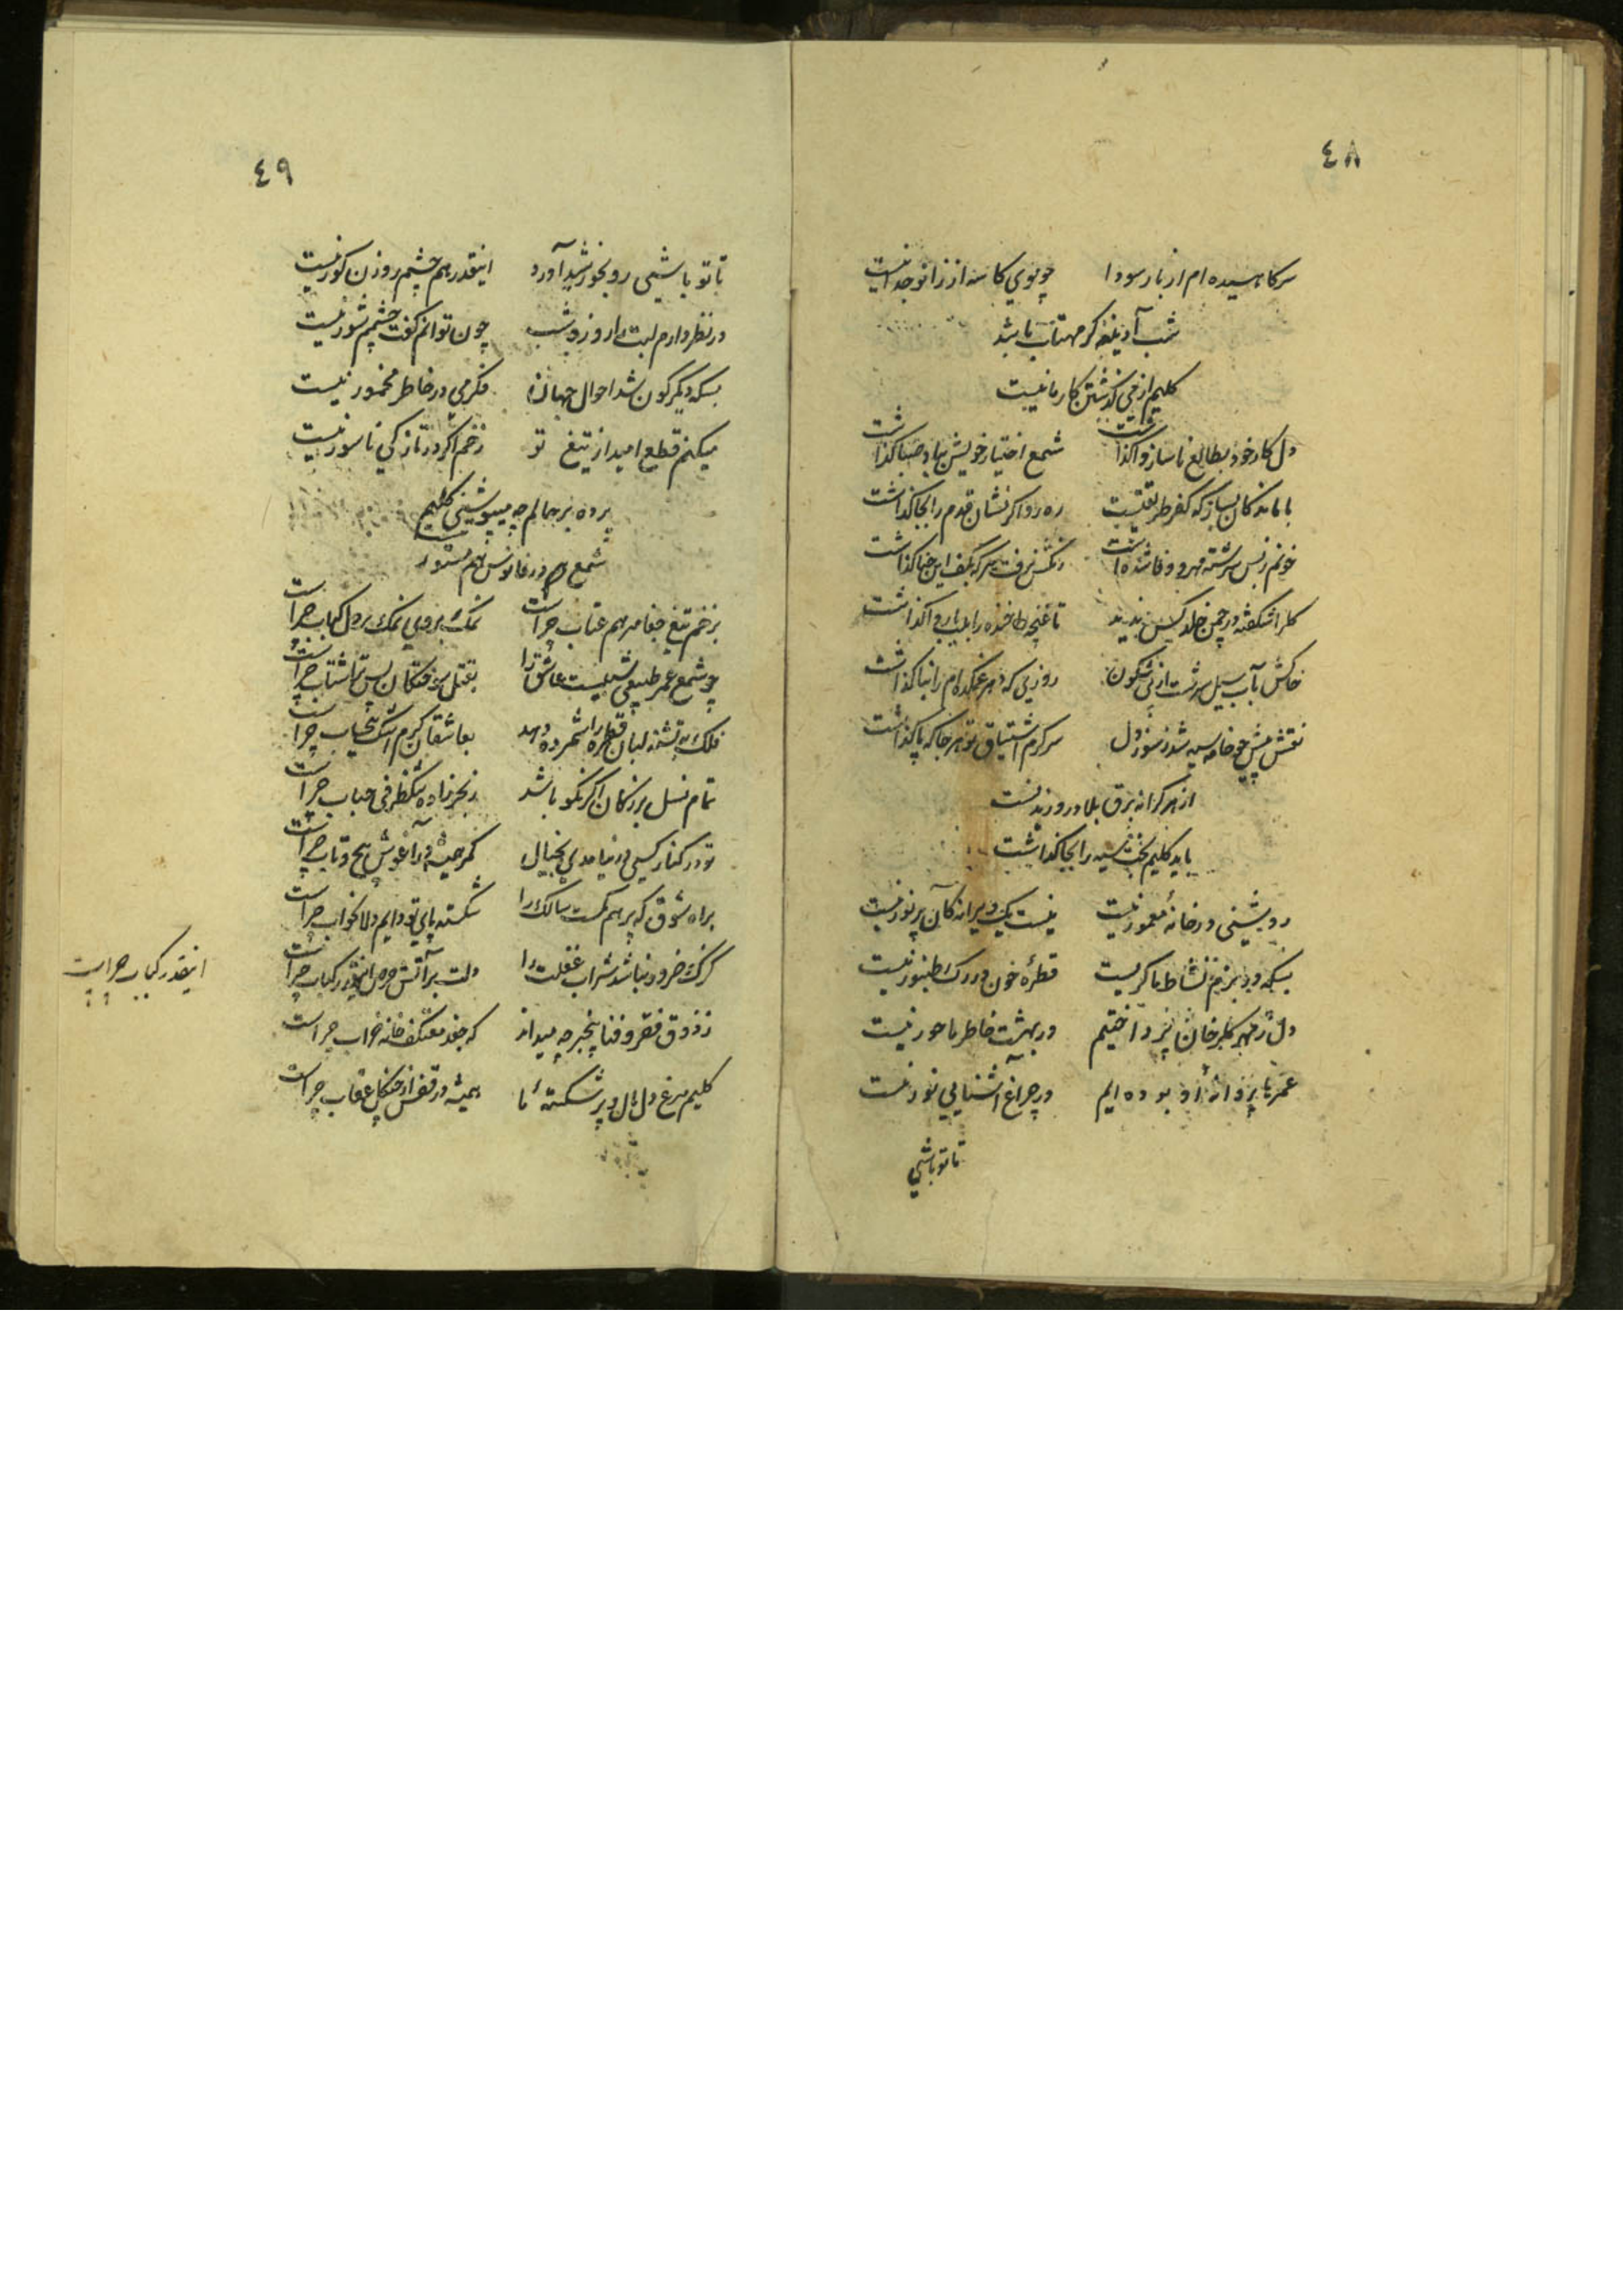 ٤٨
سر کاهیده ام از بار سودا چو موی کاسه از زانو جدا نیست
شب آدینه گر مهتاب باشد
کلیم از می گذشتن کار ما نیست
دل کار خود بطالع ناساز واگذاشت شمع اختیار خویش بباد صبا گذاشت
با ماندگان بساز که کفر طریقتست ره رو اگر نشان قدم را بجا گذاشت
خونم ز بس سرشته مهر و وفا شده است رنگش نرفت هر که بکف این حنا گذاشت
گل را شکفته در چمن خلد کس ندید تا غنچه خنده را بلب یار واگذاشت
خاکش بآب سیل سرشت از پی شگون روزی که دهر غمکده ام را بنا گذاشت
نقش پیش چو خامه سیه شد ز سوز دل سرگرم اشتیاق تو هر جا که پا گذاشت
از هر کرانه برق بلا در وزیدنست
باید کلیم بخت سیه را بجا گذاشت
رو نشینی در خانه معمور نیست نیست یک ویرانه کان پر نور نیست
بسکه در بزم نشاط ما گریست قطره خون در رگ طنبور نیست
دل ز مهر گلرخان پرداختیم در بهشت خاطر ما حور نیست
عمرها پروانه او بوده ایم در چراغ آشنایی نور نیست
تا تو باشی
٤٩
تا تو باشی رو بخورشید آورد اینقدر هم چشم روزن کور نیست
در نظر دارم لبت را روز و شب چون توانم گفت چشمم شور نیست
بسکه دیگرگون شد احوال جهان فکر می در خاطر مخمور نیست
میکنم قطع امید از تیغ تو زخم اگر در تازگی ناسور نیست
پرده بر حالم چه میپوشی کلیم
شمع در فانوس هم مستور نیست
بزخم تیغ جفا مرهم عتاب چراست نمک بروی نمک بر دل کباب چراست
چو شمع عمر طبیعی شبیست عاشق را بقتل سوختگان پس ترا شتاب چراست
فلک به تشنه لبان قطره را شمرده دهد بعاشقان کرم اشک بیحساب چراست
تمام نسل بزرگان اگر نکو باشد ز بحر زاده تنک ظرفی حباب چراست
تو در کنار کسی در نیامدی بخیال کمر همیشه در آغوش پیچ و تاب چراست
براه شوق که بر هم سالک را شکسته پای تو دایم دلا بخواب چراست
گزک ضرور نباشد شراب غفلت را دلت بر آتش حرص اینقدر کباب چراست
اینقدر کباب چراست
ز ذوق فقر و فنا بیخبر چه میداند که جغد معتکف خانه خراب چراست
کلیم مرغ دل بال و پر شکسته ما همیشه در قفس از چنگل عقاب چراست